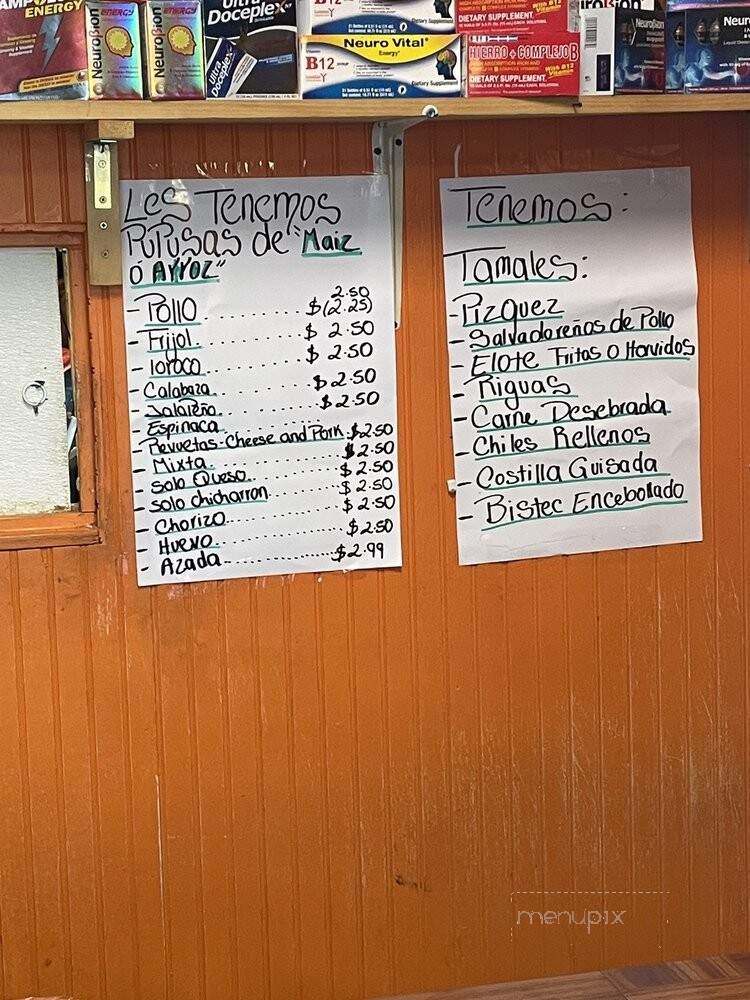 AMPOLLA
ENERGY
NeuroBion
ENERGY
NeuroBion
ENERGY
Ultra
Doceplex
Ultra
Doceplex
B12
Neuro Vital
Energy
B12
Dietary Supplement
DIETARY SUPPLEMENT
With B12
HIERRO + COMPLEJO B
DIETARY SUPPLEMENT
With B12
Vitamin
NeuroBion
Neuro
Les Tenemos
Pupusas de "Maiz
o Arroz"
- Pollo ........... $ 2.50 (2.25)
- Frijol ........... $ 2.50
- loroco ........... $ 2.50
- Calabaza ........... $ 2.50
- Jalapeño ........... $ 2.50
- Espinaca
- Revuetas-Cheese and Pork. $2.50
- Mixta ........... $2.50
- Solo Queso ........... $ 2.50
- Solo chicharron ........... $ 2.50
- Chorizo ........... $ 2.50
- Huevo ........... $2.50
- Azada ........... $2.99
Tenemos:
Tamales:
- Pizquez
- Salvadoreños de Pollo
- Elote Fritos o Horvidos
- Riguas
- Carne Desebrada
- Chiles Rellenos
- Costilla Guisada
- Bistec Encebollado
menupix